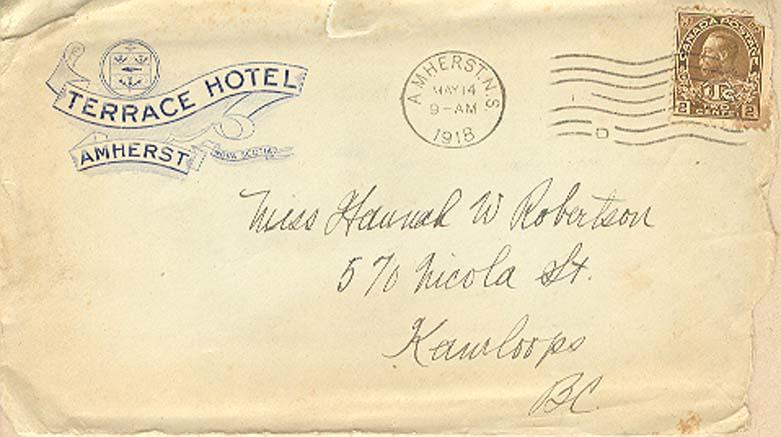 TERRACE HOTEL
AMHERST NOVA SCOTIA
AMHERST, N.S.
MAY 14
9-AM
1918
I
D
CANADA POSTAGE
1TC
2 TWO CENTS 2
Miss Hannah W Robertson
570 Nicola St.
Kamloops
BC.